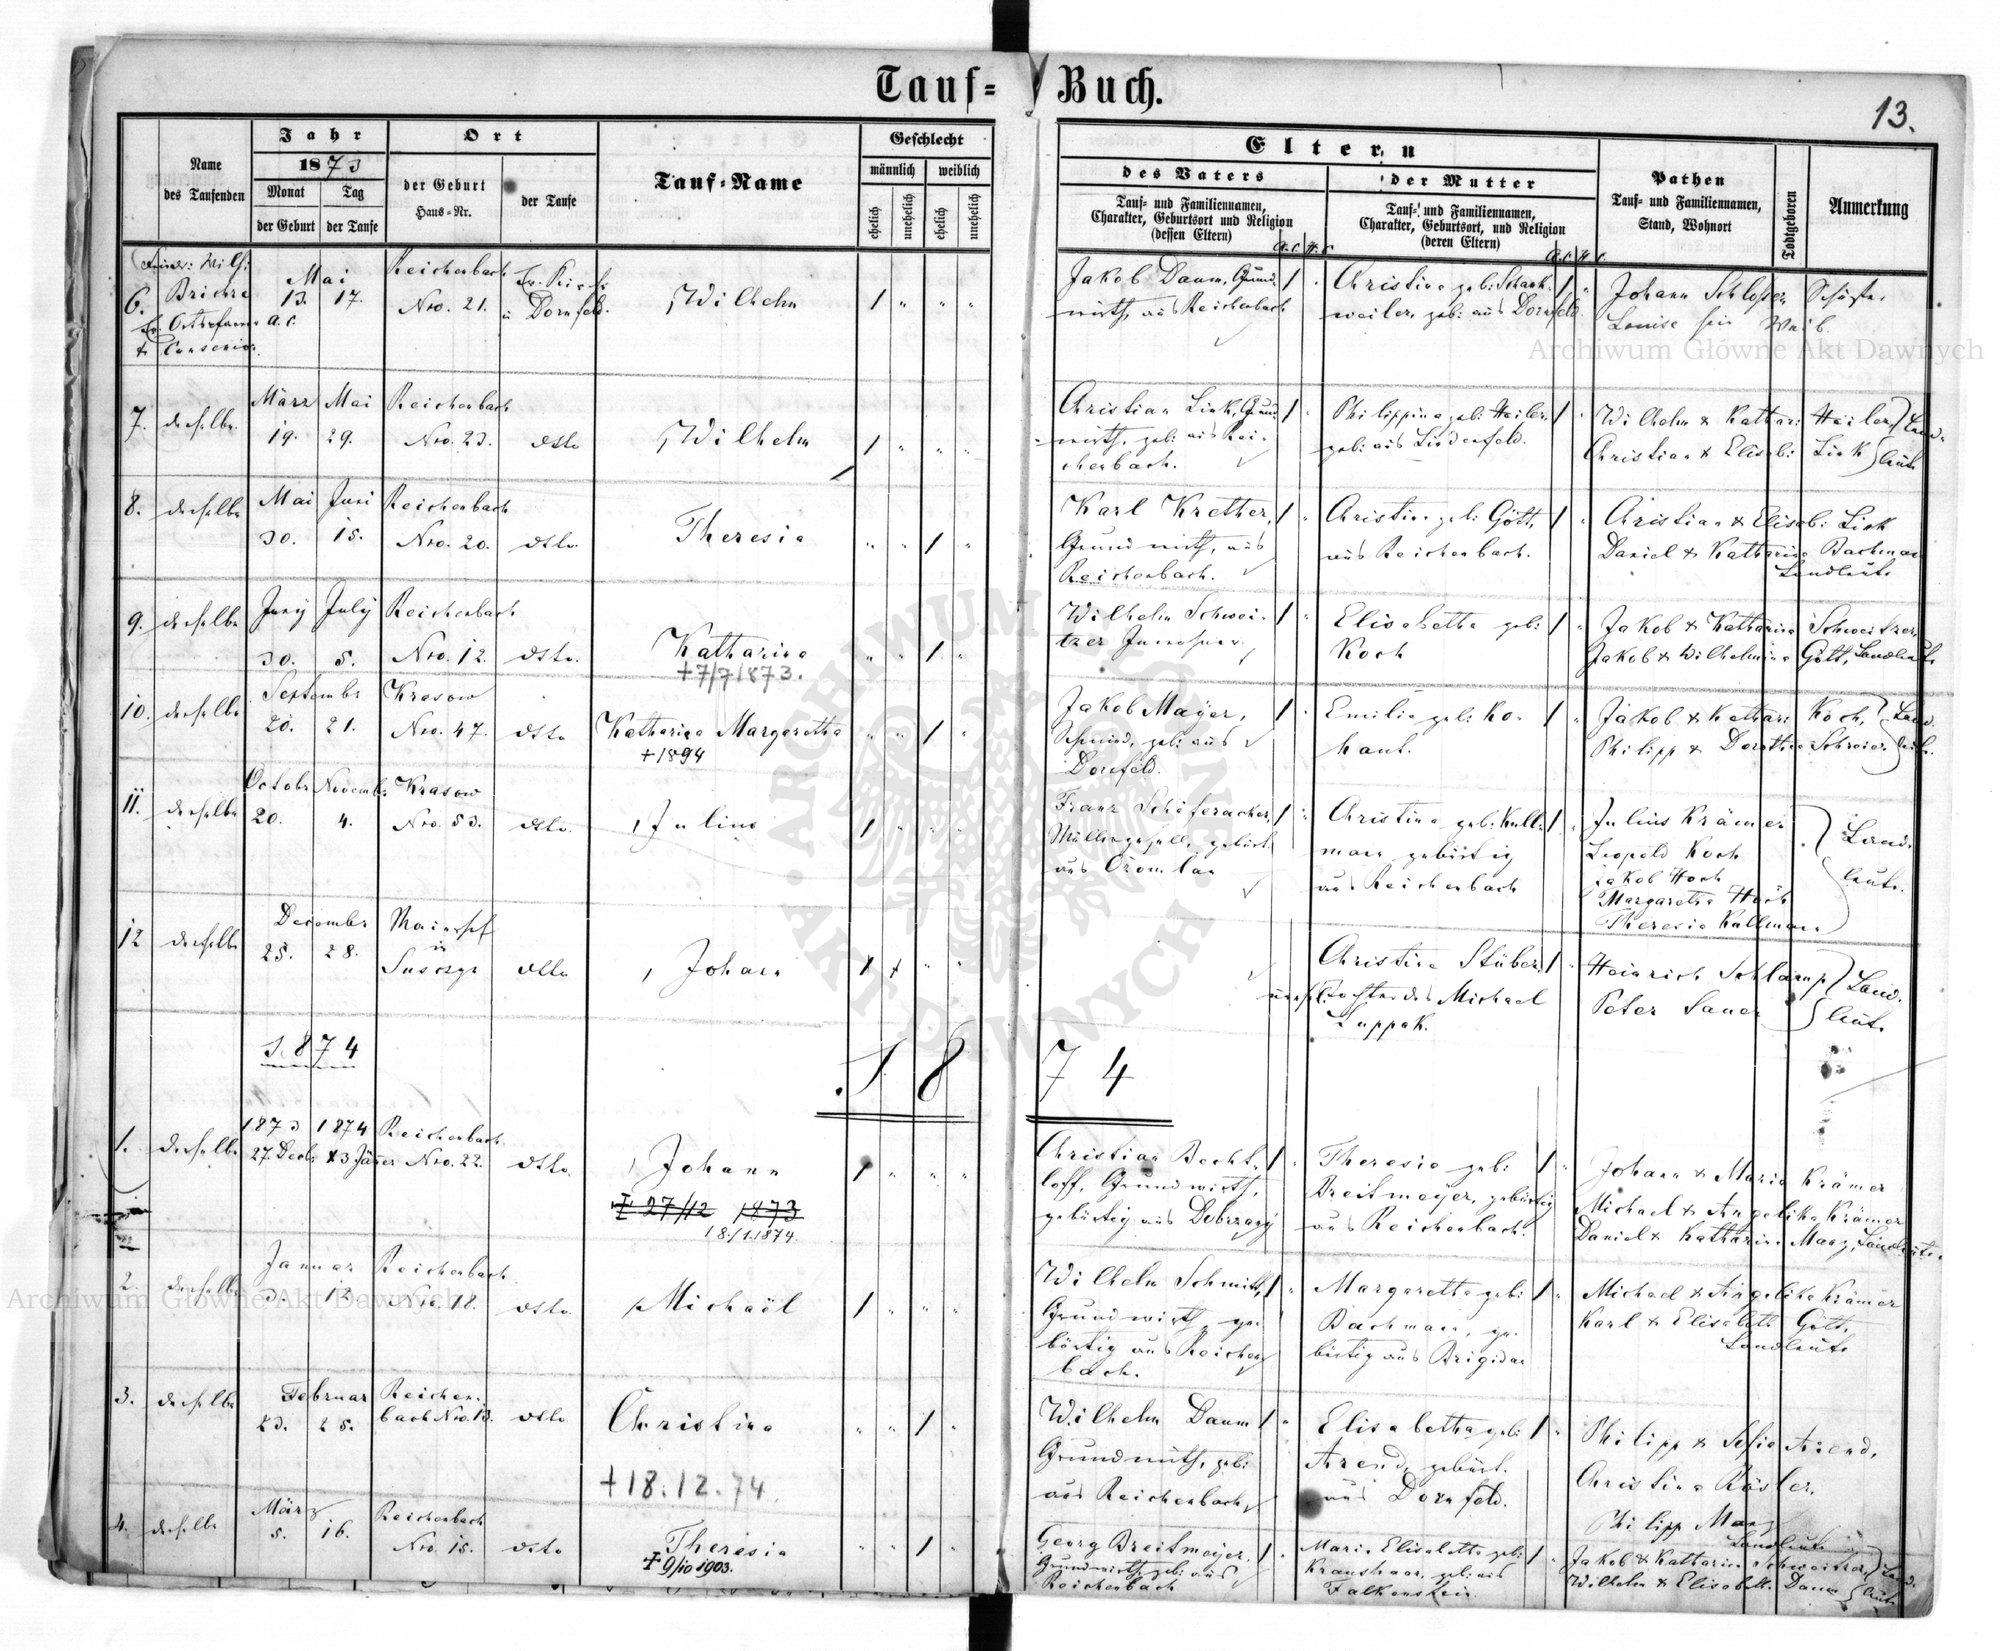 Tauf-Buch.
13.
Name des Taufenden
Jahr 1873
Monat der Geburt
Tag der Taufe
Ort
der Geburt Haus-Nr.
der Taufe
Tauf-Name
Geschlecht
männlich
weiblich
ehelich
unehelich
ehelich
unehelich
Eltern
des Vaters
Tauf- und Familiennamen,
Charakter, Geburtsort und Religion
(dessen Eltern)
der Mutter
Tauf- und Familiennamen,
Charakter, Geburtsort, und Religion
(deren Eltern)
Pathen
Tauf- und Familiennamen,
Stand, Wohnort
Todtgeboren
Anmerkung
6.
Mai
13. 17.
Reichenbach
Nro. 21.
Dornfeld.
Wilhelm
Jakob Daum, Grund-
wirth, aus Reichenbach
Christina geb: Schank-
weiler, geb: aus Dornfeld.
Johann Schlosser
Louise sein Weib.
7. derselbe
März Mai
19. 29.
Reichenbach
Nro. 23.
dto
Wilhelm
Christian Link, Grund-
wirth, geb: aus Rei-
chenbach.
Philippina geb: Heiler,
geb: aus Lindenfeld.
Wilhelm & Kathari Heiler
Christian & Elisab: Link
Landleute
8. derselbe
Mai Juni
30. 15.
Reichenbach
Nro. 20.
dto.
Theresia
Karl Krether,
Grundwirth, aus
Reichenbach.
Christine geb: Gött,
aus Reichenbach.
Christian & Elisab: Link
Daniel & Katharina Bachmann
Landleute
9. derselbe
Juny July
30. 5.
Reichenbach
Nro. 12.
dto.
Katharina
+7/7 1873.
Wilhelm Schwei-
tzer Inwohner.
Elisabetha geb:
Koch
Jakob & Katharina Schweitzer,
Jakob & Wilhelmina Gött, Landleute
10. derselbe
September
20. 21.
Krasow
Nro. 47.
dto
Katharina Margaretha
+1894
Jakob Mayer,
Schmied, geb: aus
Dornfeld.
Emilie geb: Ko-
hant.
Jakob & Kathari Koch,
Philipp & Dorothea Schreier.
11. derselbe
Octobr Novemb.
20. 4.
Krasow
Nro. 53.
dto.
Julius
Franz Schäferacher,
Müllergesell, gebürt.
Christina geb: Kull-
mann gebürtig
aus Reichenbach
Julius Krämer
Leopold Koch
Jakob Hoch
Margaretha Hoch
Theresia Kullmann
Landleute.
12 derselbe
December
25. 28.
Mainhof
in
dto
Johann
Christina Stüber,
Tochter des Michael
Luppak.
Heinrich Schlamp
Peter Sauer
Landleute
1874
1874
1. derselbe
1873 1874
27. Decb. 13 Jäner
Reichenbach
Nro. 22.
dto.
Johann
+ 27/12 1873
18/1 1874.
Christian Becht-
loff, Grundwirth,
Theresia geb:
Breitmeyer, gebürtig
aus Reichenbach.
Johann & Maria Krämer
Michael & Angelika Krämer
Daniel & Katharina Manz, Landleute.
2. derselbe
Januar
3. 12
Reichenbach
Nro. 18.
dto.
Michaël
Wilhelm Schmitt,
Grundwirth, ge-
bürtig aus Reichen-
bach.
Margaretha geb:
Bachmann, ge-
bürtig aus Brigidau
Michael & Angelika Krämer
Karl & Elisabeth Gött,
Landleute
3. derselbe
Februar
23. 25.
Reichen-
bach Nro. 13.
dto
Christina
+18.12.74.
Wilhelm Daum
Grundwirth, geb:
aus Reichenbach
Elisabetha geb:
Arend, gebürt.
aus Dornfeld.
Philipp & Sofia Arend,
Christina Rösler,
Philipp Manz
Landleute
4. derselbe
März
5. 16.
Reichenbach
Nro. 15.
dto
Theresia
+ 9/10 1903.
Georg Breitmeyer,
Grundwirth, geb: aus
Reichenbach
Maria Elisabetha geb:
Kranshaar, geb: aus
Falkenstein.
Jakob & Katharina Schweitzer,
Wilhelm & Elisabeth Daum
Archiwum Główne Akt Dawnych
Archiwum Główne Akt Dawnych
ARCHIWUM GŁÓWNE AKT DAWNYCH